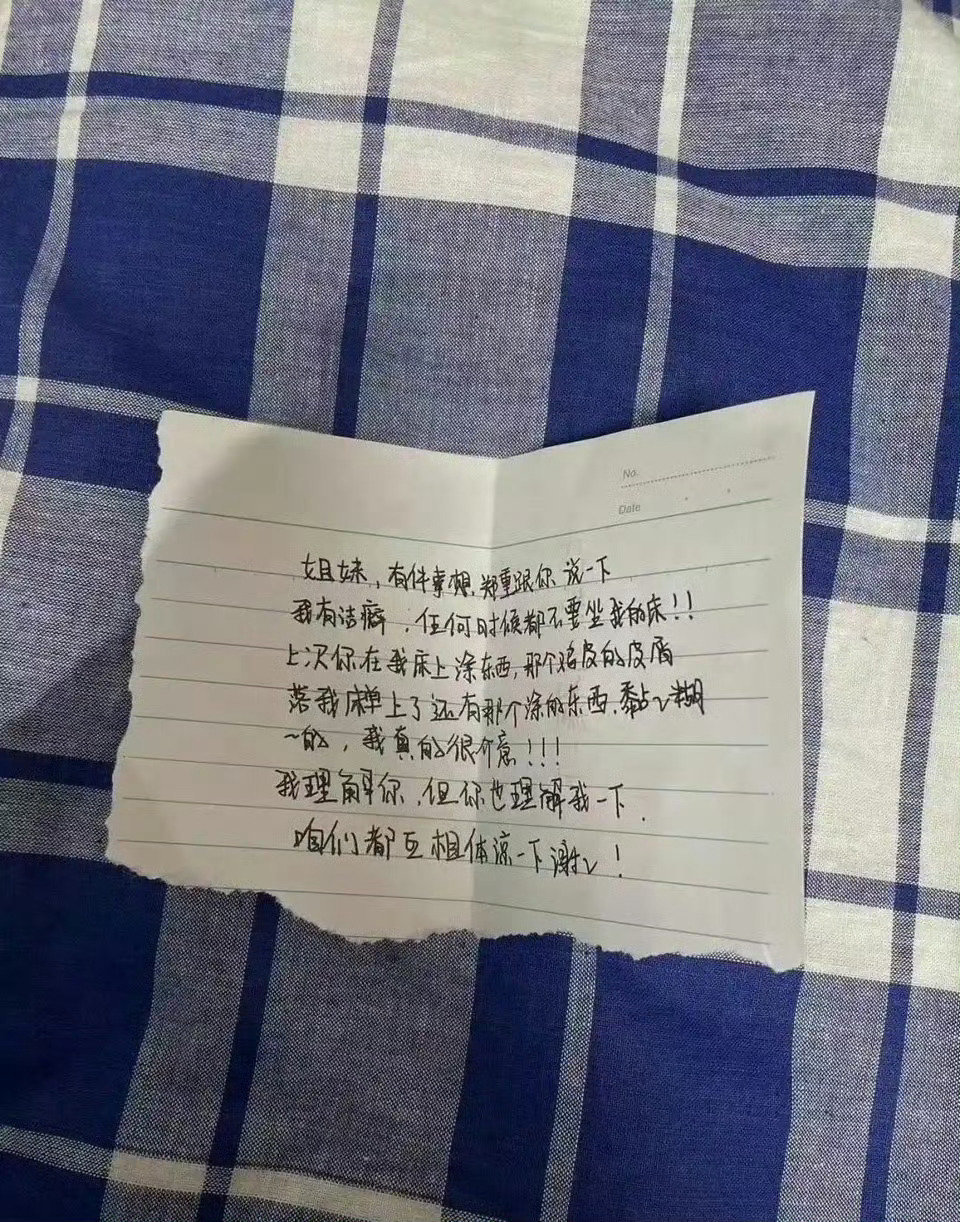 No.
Date
姐妹,有件事想郑重跟你说一下
我有洁癖,任何时候都不要坐我的床!!
上次你在我床上涂东西,那个鸡皮的皮屑
落我床单上了还有那个涂的东西,黏〻糊
~的,我真的很介意!!!
我理解你,但你也理解我一下.
咱们都互相体谅一下谢〻!